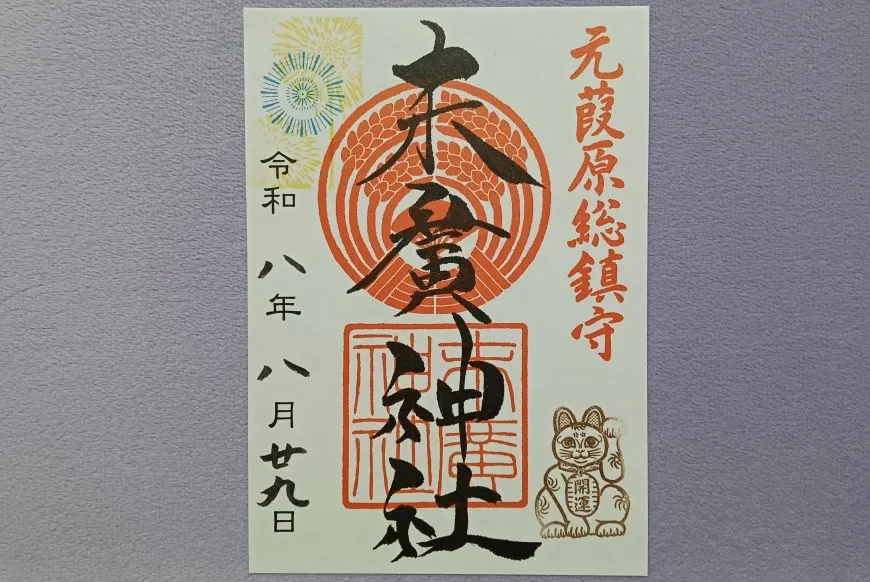 元葭原総鎮守
末廣神社
末廣
神社
令和 八年 八月廿九日
開運